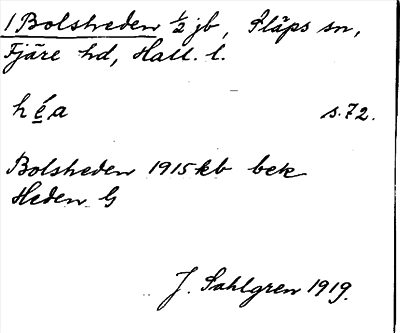 1 Bolsheden 1/2 jb, Släps sn,
Fjäre hd, Hall. l.
héa s.72.
Bolsheden 1915 kb bek
Heden G
J. Sahlgren 1919.